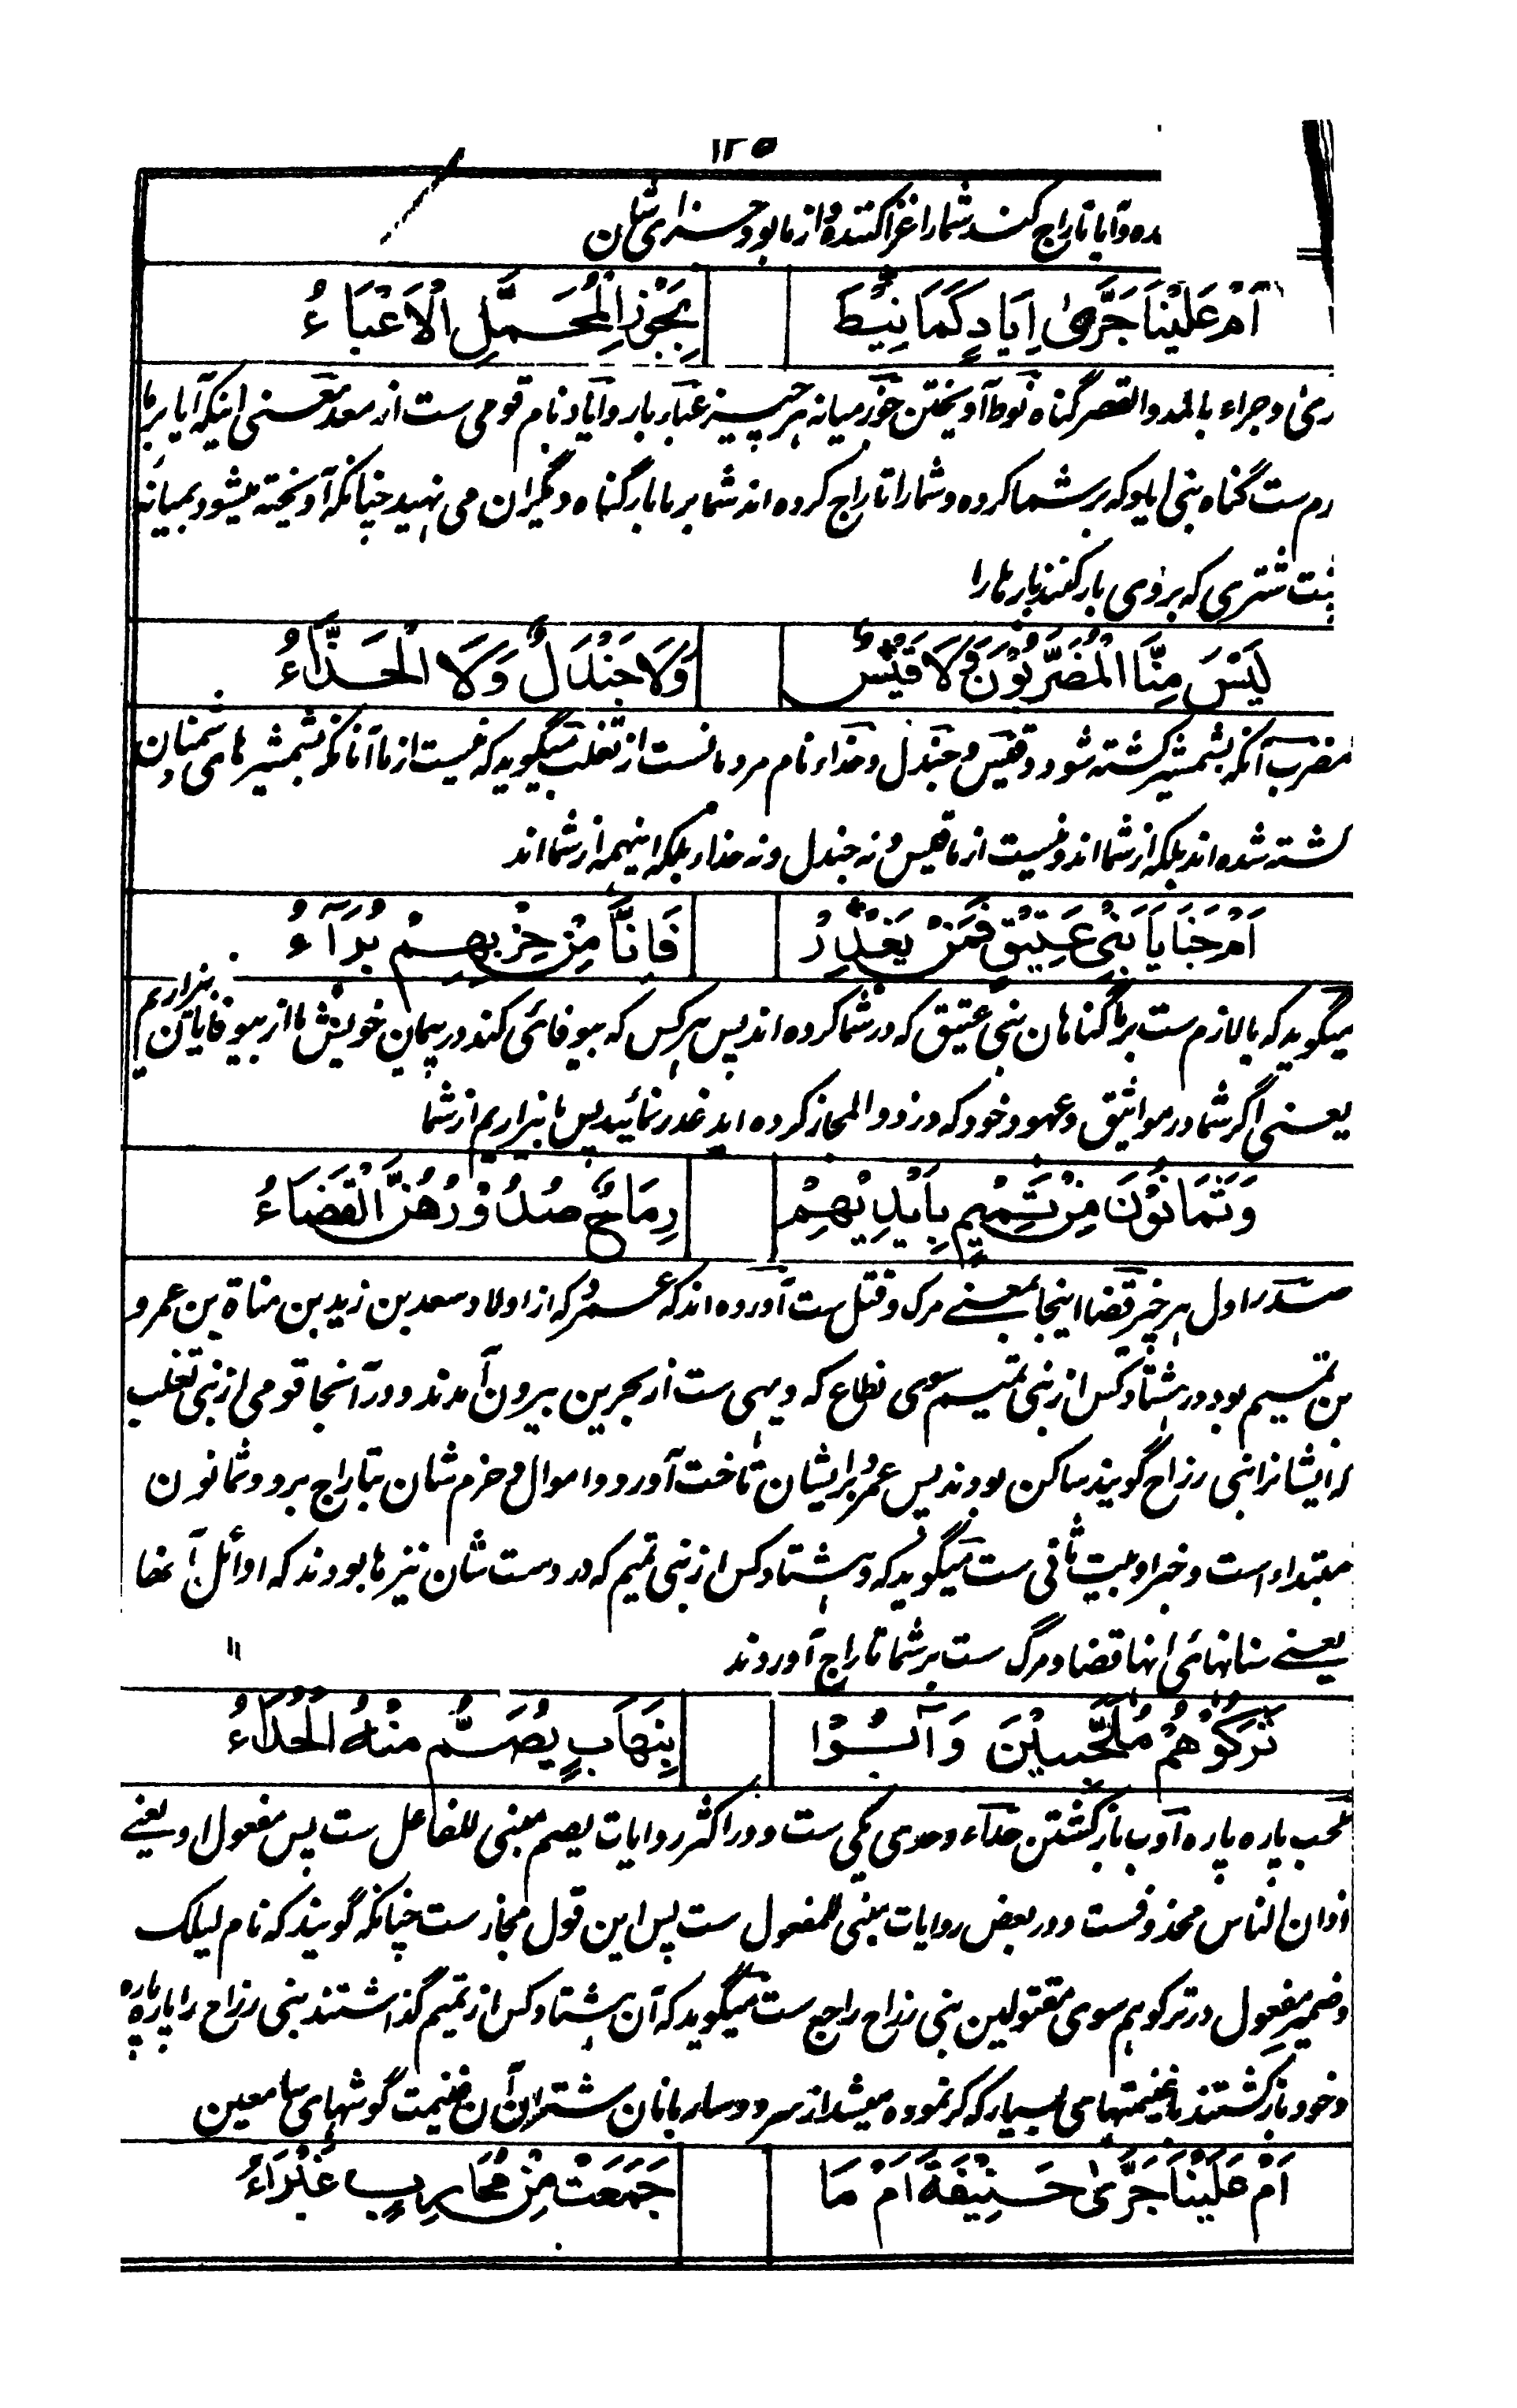 ١٢٥
ده و آیا تاراج کند شما را غزا کننده و از ما بود جزای شان
اَمْ عَلَيْنَا جَرّٰى اِيَادٍ كَمَا نِيْطَ بِجَوْزِ الْمُحَمَّلِ الْاَعْبَاءُ
ریٰ و جراء بالمد والقصر گناه نوط آویختن جوز میانه هر چیز عبار بار و ایاد نام قومی ست از معد معنی اینکه آیا بر ما
رم ست گناه بنی ایاد که بر شما کرده و شما را تاراج کرده اند شما بر ما بار گناه دیگران می نهید چنانکه آویخته میشود بمیانه
شتری که بر وی بار کنند بارها را
لَيْسَ مِنَّا الْمُضَرَّبُوْنَ وَلَا قَيْسٌ وَلَا جَنْدَلٌ وَلَا الْحَذَّاءُ
مضرب آنکه بشمشیر کشته شود و قیس و جندل و حذاء نام مردمانست از تغلب میگوید که نیست از ما آنانکه بشمشیرهای دشمنان
کشته شده اند بلکه از شما اند و نیست از ما قیس و نه جندل و نه حذاء بلکه اینهمه از شما اند
اَمْ جَنَايَا بَنِيْ عَتِيْقٍ فَمَنْ يَغْدِرْ فَاِنَّا مِنْ حِزْبِهِمْ بُرَآءُ
میگوید که یا لازم ست بر ما گناهان بنی عتیق که در شما کرده اند پس هر کس که بیوفائی کند در پیمان خویش ما از بیوفایان بیزاریم
یعنی اگر شما در مواثیق و عهود خود که در ذو المجاز کرده اید غدر نمائید پس ما بیزاریم از شما
وَثَمَانُوْنَ مِنْ تَمِيْمٍ بِاَيْدِيْهِمْ رِمَاحٌ صُدُوْرُهُنَّ الْقَضَاءُ
صدر اول هر چیز قضا اینجا بمعنی مرگ و قتل ست آورده اند که عمرو که از اولاد سعد بن زید بن مناة بن عمرو
بن تمیم بود در هشتاد کس از بنی تمیم سوی نطاع که دیهی ست از بحرین بیرون آمدند و در آنجا قومی از بنی تغلب
که ایشانرا بنی رزاح گویند ساکن بودند پس عمرو بر ایشان تاخت آورد و اموال و خرم شان بتاراج برد و ثمانون
مبتداء است و خبر او بیت ثانی ست میگوید که و هشتاد کس از بنی تمیم که در دست شان نیزها بودند که اوائل آنها
یعنی سنانهای انها قضا و مرگ ست بر شما تاراج آوردند
تَرَكُوْهُمْ مُلَحَّبِيْنَ وَآبُوْا بِنِهَابٍ يُصَمُّ مِنْهُ الْحُدَاءُ
ملحب پاره پاره آوب بازگشتن حداء و حدی یکی ست و در اکثر روایات یصم مبنی للفاعل ست پس مفعول او یعنی
اذان الناس محذوفست و در بعض روایات مبنی للمفعول ست پس این قول مجاز ست چنانکه گویند که نام لیلک
و ضمیر مفعول در ترکوهم سوی مقتولین بنی رزاح راجع ست میگوید که آن هشتاد کس از تمیم گذاشتند بنی رزاح را پاره پاره
و خود بازگشتند با غنیمتهای بسیار که کر نموده میشد از سرود ساربانان شتران آن غنیمت گوشهای سامعین
اَمْ عَلَيْنَا جَرّٰى حَنِيْفَةَ اَمْ مَا جَمَعَتْ مِنْ مُحَارِبٍ غَبْرَاءُ